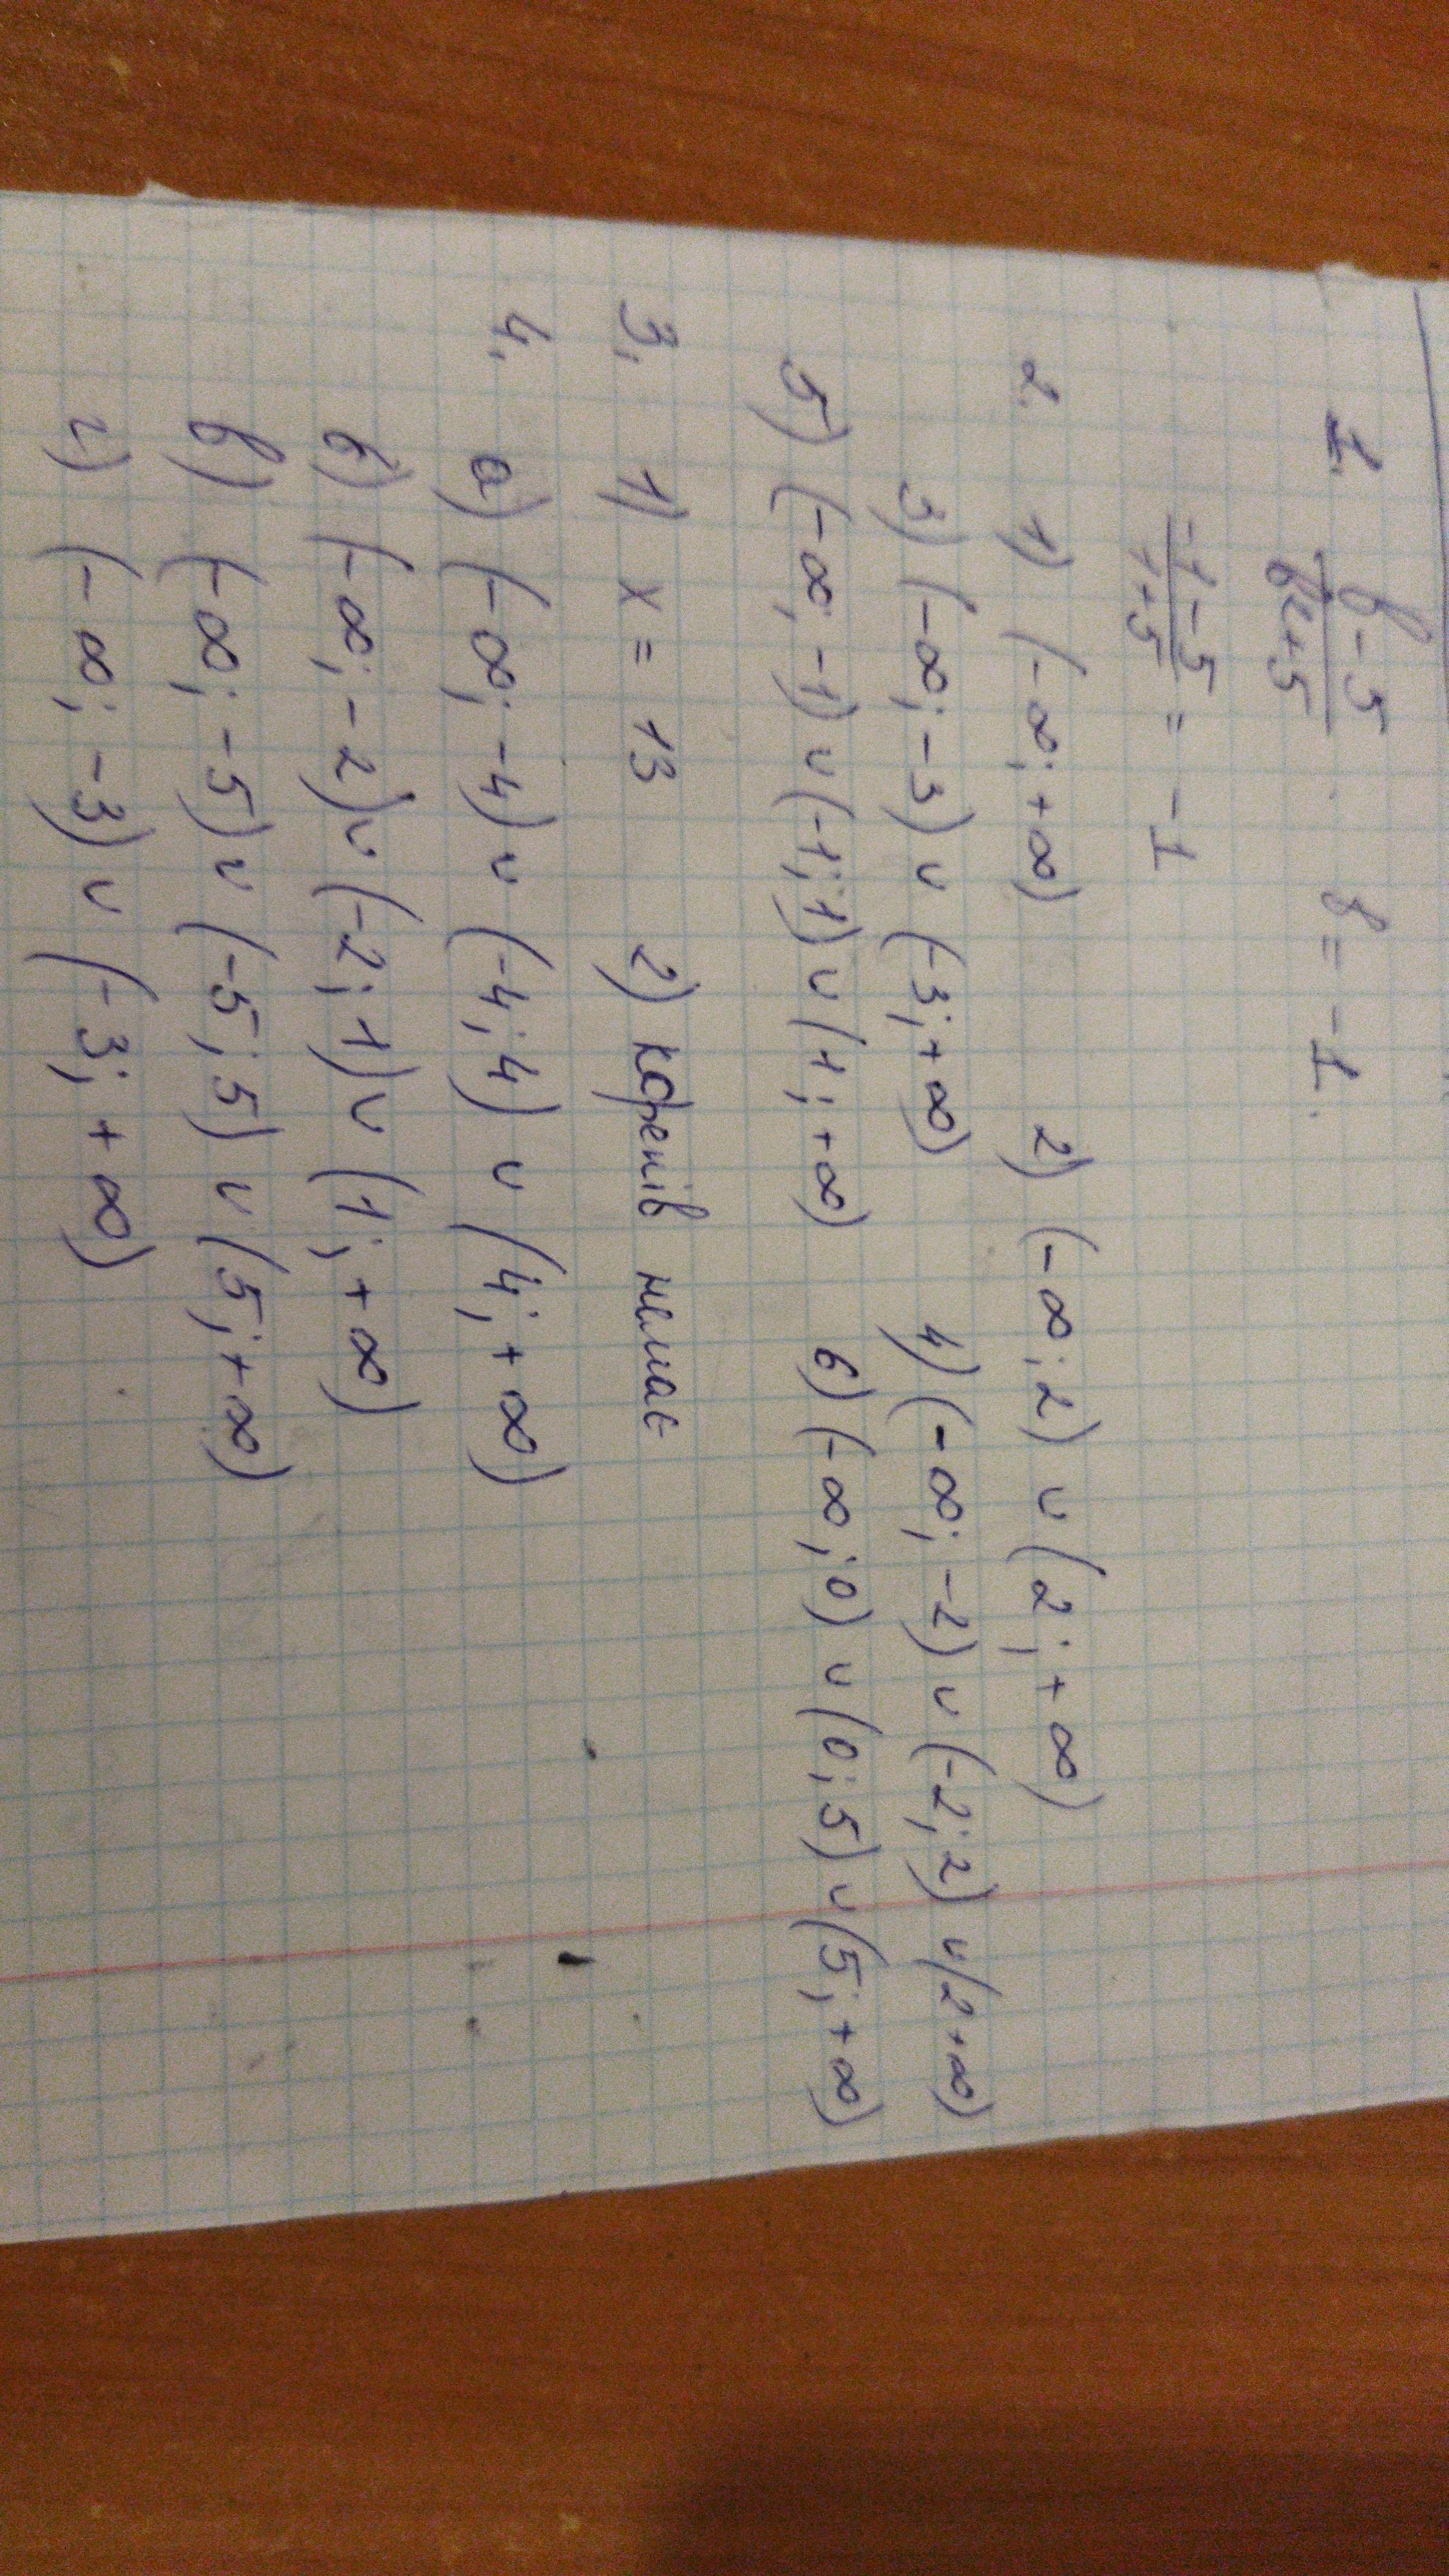 1. (b-5)/(b²+5) b = -1.
(-1-5)/(1+5) = -1
2. 1) (-∞; +∞) 2) (-∞; 2) ∪ (2; +∞)
3) (-∞; -3) ∪ (-3; +∞) 4) (-∞; -2) ∪ (-2; 2) ∪ (2 +∞)
5) (-∞; -1) ∪ (-1; 1) ∪ (1; +∞) 6) (-∞; 0) ∪ (0; 5) ∪ (5; +∞)
3. 1) x = 13 2) коренів немає
4. а) (-∞; -4) ∪ (-4; 4) ∪ (4; +∞)
б) (-∞; -2) ∪ (-2; 1) ∪ (1; +∞)
в) (-∞; -5) ∪ (-5; 5) ∪ (5; +∞)
г) (-∞; -3) ∪ (-3; +∞)